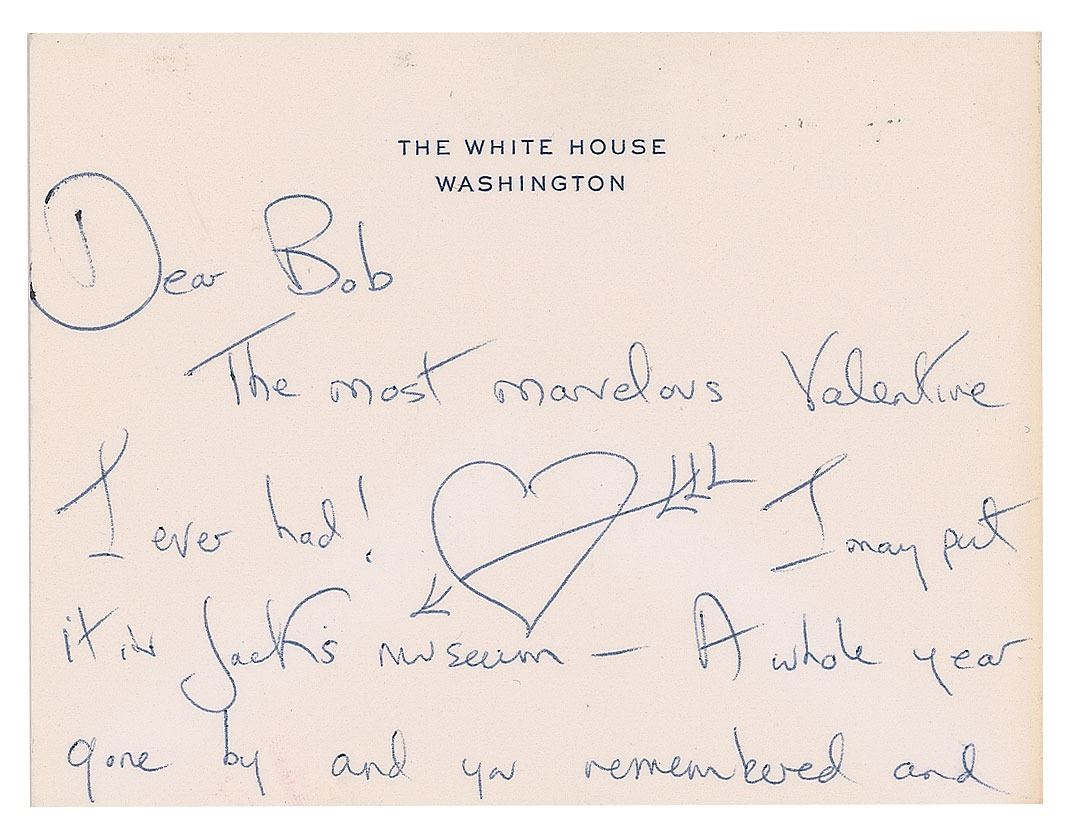 THE WHITE HOUSE
WASHINGTON
Dear Bob
The most marvelous Valentine
I ever had! I may put
it in Jack's museum — A whole year
gone by and you remembered and